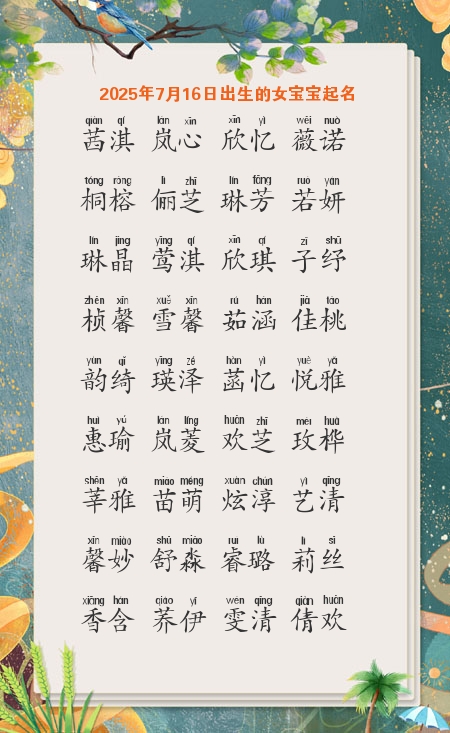 2025年7月16日出生的女宝宝起名
qiàn qí lán xīn xīn yì wēi nuò
茜淇 岚心 欣忆 薇诺
tóng róng lì zhī lín fāng ruò yán
桐榕 俪芝 琳芳 若妍
lín jīng yīng qí xīn qí zǐ shū
琳晶 莺淇 欣琪 子纾
zhēn xīn xuě xīn rú hán jiā táo
桢馨 雪馨 茹涵 佳桃
yùn qǐ yīng zé hàn yì yuè yǎ
韵绮 瑛泽 菡忆 悦雅
huì yú lán líng huān zhī méi huà
惠瑜 岚菱 欢芝 玫桦
shēn yǎ miáo méng xuàn chún yì qīng
莘雅 苗萌 炫淳 艺清
xīn miào shū miǎo ruì lù lì sī
馨妙 舒淼 睿璐 莉丝
xiāng hán qiáo yī wén qīng qiàn huān
香含 荞伊 雯清 倩欢